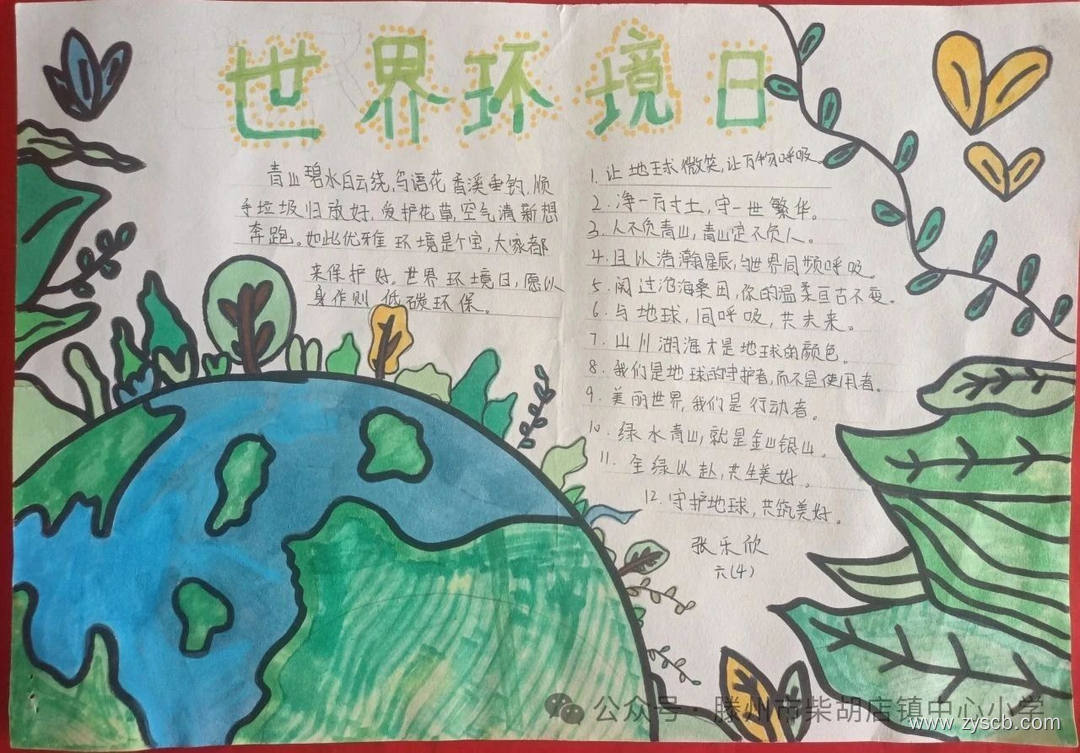 世界环境日
青山碧水白云绕,鸟语花香溪垂钓,顺
手垃圾归放好,爱护花草,空气清新想
奔跑。如此优雅环境是个宝,大家都
来保护好。世界环境日,愿以
身作则低碳环保。
1.让地球微笑,让万物呼吸。
2.净一方寸土,守一世繁华。
3.人不负青山,青山定不负人。
4.且以浩瀚星辰,与世界同频呼吸。
5.阅过沧海桑田,你的温柔亘古不变。
6.与地球,同呼吸,共未来。
7.山川湖海才是地球的颜色。
8.我们是地球的守护者,而不是使用者。
9.美丽世界,我们是行动者。
10.绿水青山,就是金山银山。
11.全绿以赴,共生美好。
12.守护地球,共筑美好。
张乐欣
六(4)
公众号·滕州市柴胡店镇中心小学
www.zyscb.com